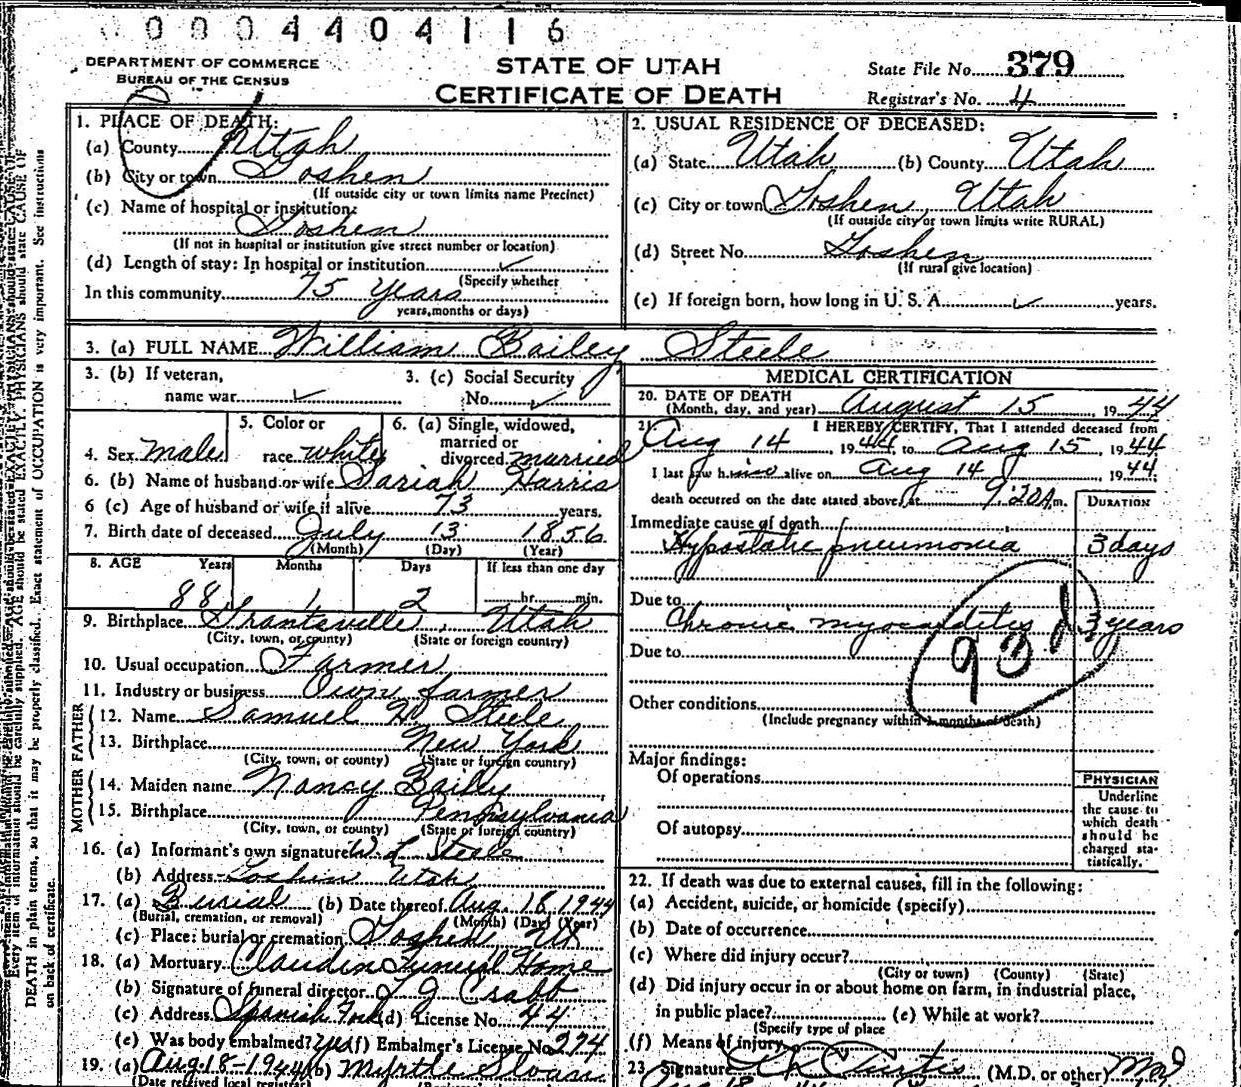 0004404116
DEPARTMENT OF COMMERCE
BUREAU OF THE CENSUS
STATE OF UTAH
CERTIFICATE OF DEATH
State File No. 379
Registrar's No. 4
1. PLACE OF DEATH:
(a) County Utah
(b) City or town Goshen
(If outside city or town limits name Precinct)
(c) Name of hospital or institution:
Goshen
(If not in hospital or institution give street number or location)
(d) Length of stay: In hospital or institution ✓
(Specify whether
In this community 75 years
years, months or days)
2. USUAL RESIDENCE OF DECEASED:
(a) State Utah (b) County Utah
(c) City or town Goshen, Utah
(If outside city or town limits write RURAL)
(d) Street No. Goshen
(If rural give location)
(e) If foreign born, how long in U. S. A. ✓ years.
3. (a) FULL NAME William Bailey Steele
3. (b) If veteran,
name war ✓
3. (c) Social Security
No. ✓
4. Sex male
5. Color or
race white
6. (a) Single, widowed,
married or
divorced married
6. (b) Name of husband or wife Sariah Harris
6 (c) Age of husband or wife if alive 73 years.
7. Birth date of deceased July 13 1856
(Month) (Day) (Year)
8. AGE Years Months Days If less than one day
88 1 2 hr. min.
9. Birthplace Grantsville, Utah
(City, town, or county) (State or foreign country)
10. Usual occupation Farmer
11. Industry or business Own farmer
FATHER
12. Name Samuel H. Steele
13. Birthplace New York
(City, town, or county) (State or foreign country)
MOTHER
14. Maiden name Nancy Bailey
15. Birthplace Pennsylvania
(City, town, or county) (State or foreign country)
16. (a) Informant's own signature W. L. Steele
(b) Address Goshen Utah
17. (a) Burial (b) Date thereof Aug. 18 1944
(Burial, cremation, or removal) (Month) (Day) (Year)
(c) Place: burial or cremation Goshen Ut
18. (a) Mortuary Claudin Funeral Home
(b) Signature of funeral director Crabb
(c) Address Spanish Fork (d) License No. 44
(e) Was body embalmed? yes (f) Embalmer's License No. 274
19. (a) Aug 18-1944 (b) Myrtle Sloan
(Date received local registrar)
MEDICAL CERTIFICATION
20. DATE OF DEATH
(Month, day, and year) August 15, 1944
21. I HEREBY CERTIFY, That I attended deceased from
Aug 14, 1944, to Aug 15, 1944
I last saw him alive on Aug 14, 1944.
death occurred on the date stated above, at 9:20 A m.
DURATION
Immediate cause of death
Hypostatic pneumonia 3 days
Due to
Chronic myocarditis 3 years
93 d
Due to
Other conditions
(Include pregnancy within 3 months of death)
Major findings:
Of operations
Of autopsy
PHYSICIAN
Underline
the cause to
which death
should be
charged sta-
tistically.
22. If death was due to external causes, fill in the following:
(a) Accident, suicide, or homicide (specify)
(b) Date of occurrence
(c) Where did injury occur?
(City or town) (County) (State)
(d) Did injury occur in or about home on farm, in industrial place,
in public place? (e) While at work?
(Specify type of place
(f) Means of injury
23 Signature Curtis (M.D. or other) MD
AGE should be stated EXACTLY. PHYSICIANS should state CAUSE OF
DEATH in plain terms, so that it may be properly classified. Exact statement of OCCUPATION is very important. See instructions
on back of certificate.